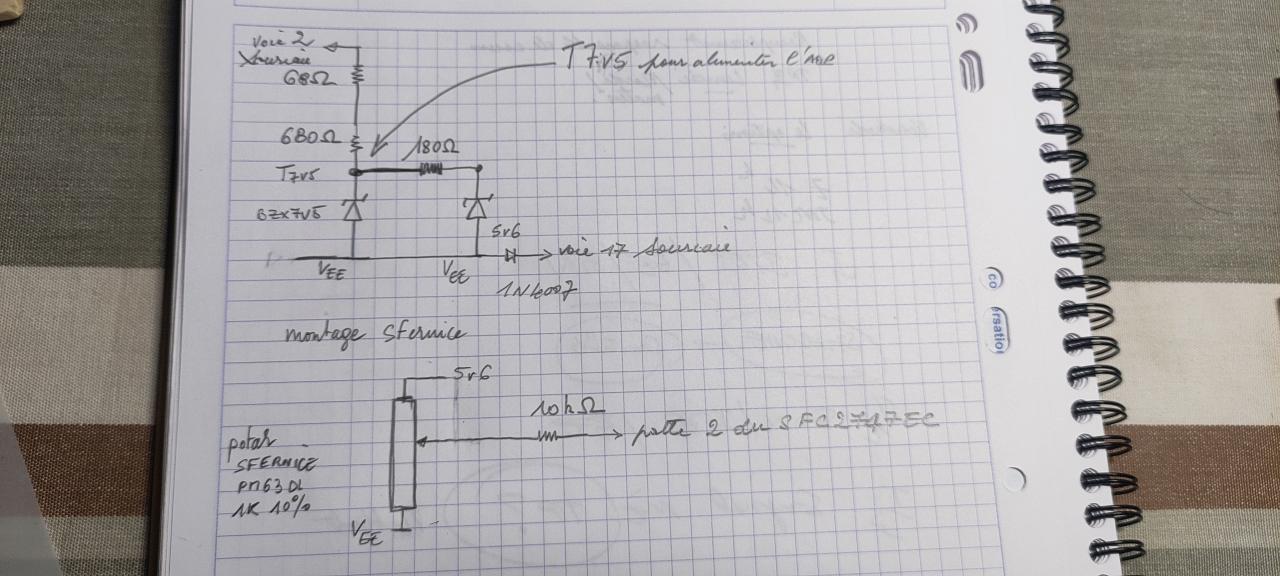 voie 2
68Ω
T7v5 pour alimenter l'
680Ω
180Ω
T7v5
BZX7V5
5v6
voie 17
VEE
VEE
1N4007
montage Sfernice
5v6
10kΩ
patte 2 du SFC2747EC
potar
SFERNICE
PM63DL
1K 10%
VEE
co
rsatio